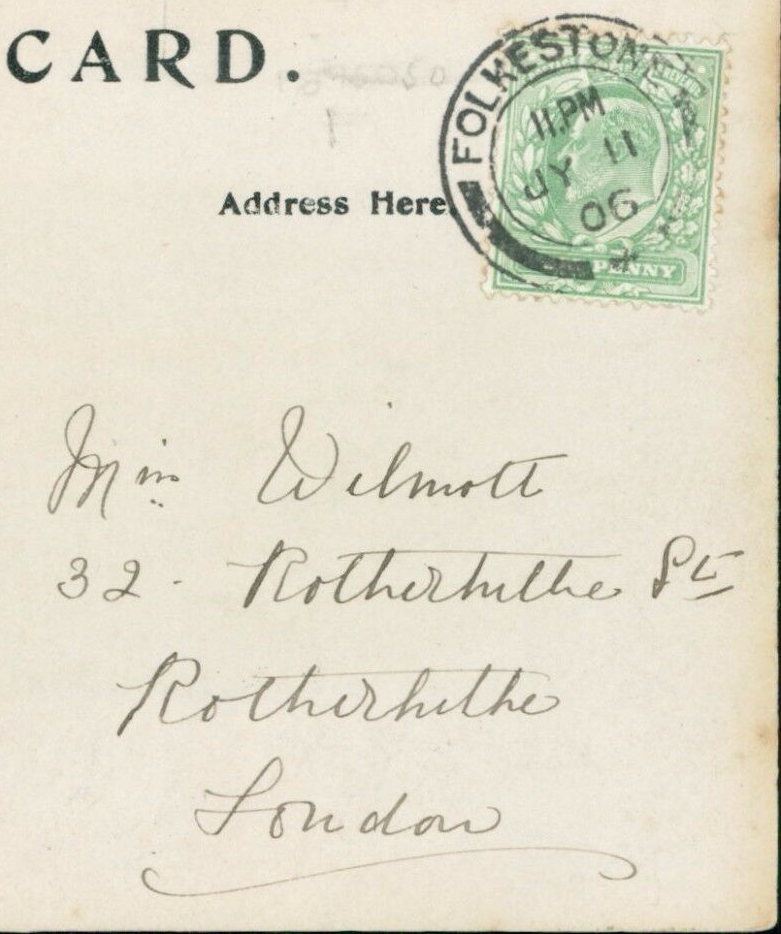 CARD.
FOLKESTONE
11.PM
JY 11
06
PENNY
Address Here.
Miss Wilmott
32 - Rotherhithe St
Rotherhithe
London